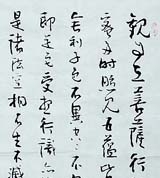 觀自在菩薩行
多時照見五蘊皆
舍利子色不異空空不
即是色受想行識亦
是諸法空相不生不滅